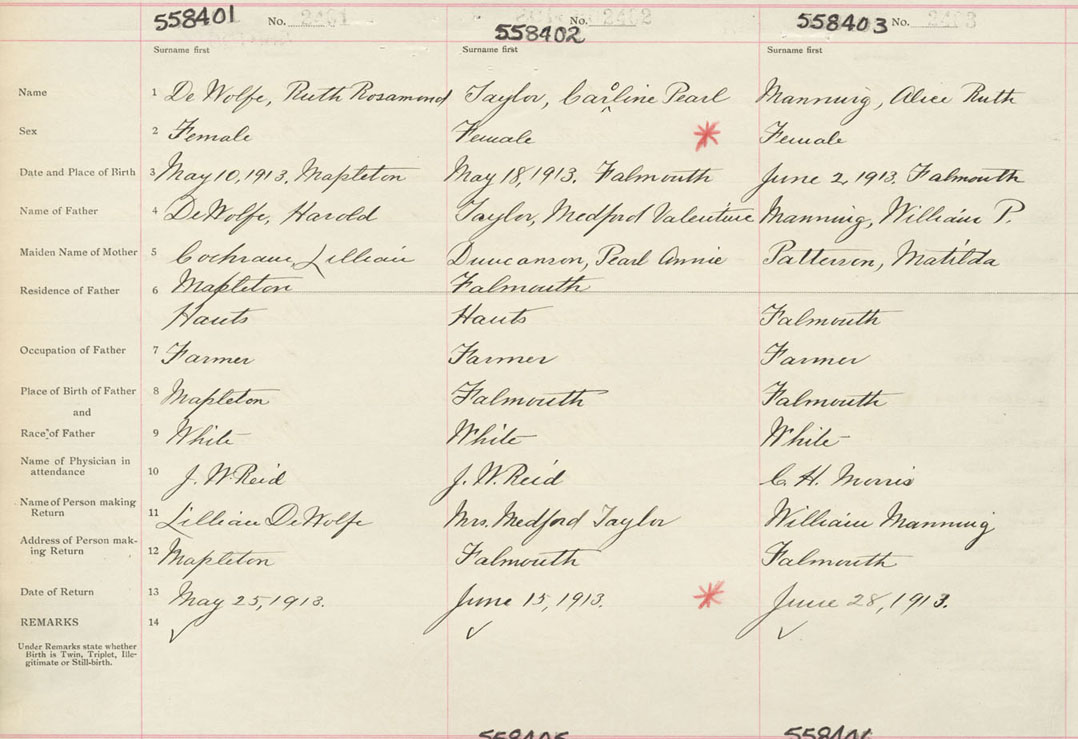 558401 No. 2401 558402 No. 2402 558403 No. 2403
Surname first Surname first Surname first
Name 1 De Wolfe, Ruth Rosamond Taylor, Caroline Pearl Manning, Alice Ruth
Sex 2 Female Female Female
Date and Place of Birth 3 May 10, 1913, Mapleton May 18, 1913. Falmouth June 2, 1913. Falmouth
Name of Father 4 DeWolfe, Harold Taylor, Medford Valentine Manning, William P.
Maiden Name of Mother 5 Cochrane, Lillian Duncanson, Pearl Annie Patterson, Matilda
Residence of Father 6 Mapleton Falmouth
Hants Hants Falmouth
Occupation of Father 7 Farmer Farmer Farmer
Place of Birth of Father 8 Mapleton Falmouth Falmouth
and
Race of Father 9 White White White
Name of Physician in
attendance 10 J. W. Reid J. W. Reid C. H. Morris
Name of Person making
Return 11 Lillian DeWolfe Mrs. Medford Taylor William Manning
Address of Person mak-
ing Return 12 Mapleton Falmouth Falmouth
Date of Return 13 May 25, 1913. June 15, 1913. June 28, 1913.
REMARKS 14
Under Remarks state whether
Birth is Twin, Triplet, Ille-
gitimate or Still-birth.